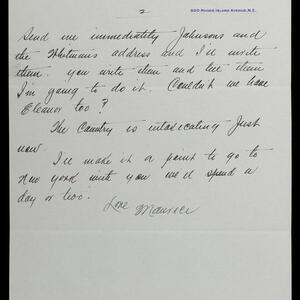 2
900 RHODE ISLAND AVENUE, N.E.
Send me immediately Johnsons and
the Whitman's address and I'll write
them. you write them and tell them
I'm going to do it. Couldn't we have
Eleanor too?
The Country is intoxicating just
now.
I'll make it a point to go to
New York with you we'll spend a
day or two.
Love
Maurice